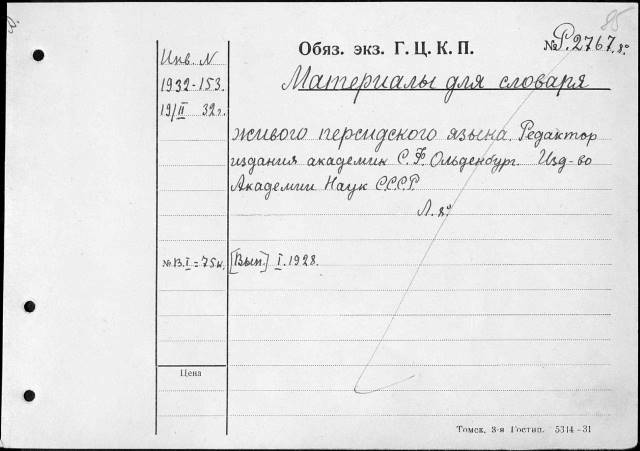 85
Обяз. экз. Г. Ц. К. П.
№ Р. 2767. 8°
Инв. N
1932-153.
19/II 32г.
Материалы для словаря
живого персидского языка. Редактор
издания академик С. Ф. Ольденбург. Изд-во
Академии Наук СССР
Л. 8°
№ В. I = 75 к.
[Вып.] I. 1928.
Цена
Томск, 3-я Гостип. 5314-31